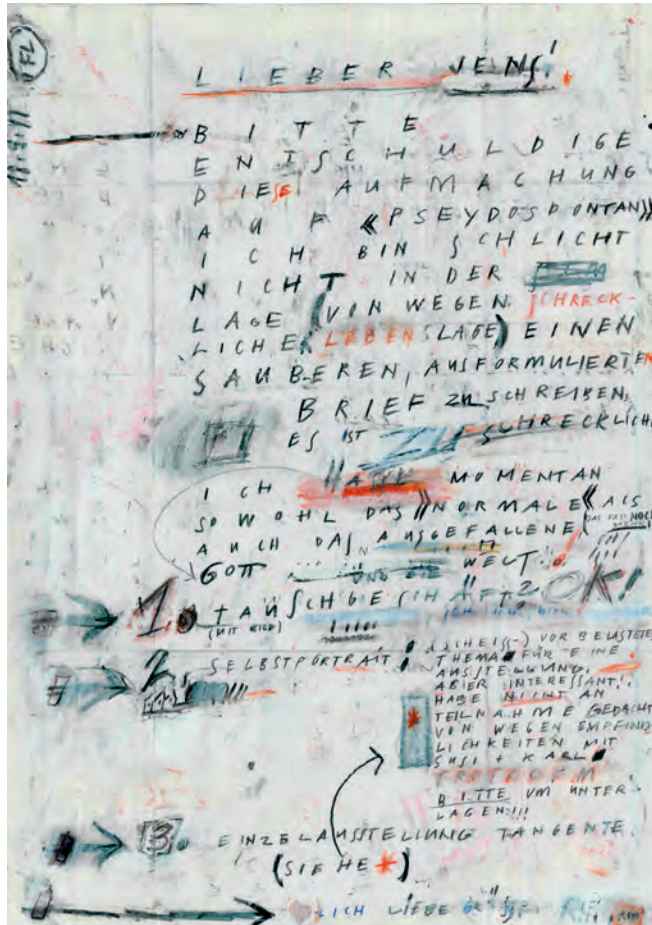 FL
LIEBER JENS! *
BITTE
ENTSCHULDIGE
DIESE AUFMACHUNG
AUF «PSEYDOSDONTAN»
ICH BIN SCHLICHT
NICHT IN DER
LAGE (VON WEGEN SCHRECK-
LICHER LEBENSLAGE) EINEN
SAUBEREN, AUSFORMULIERTEN
BRIEF ZU SCHREIBEN.
ES IST ZU SCHRECKLICH
ICH HASSE MOMENTAN
SOWOHL DAS »NORMALE« ALS
AUCH DAS AUSGEFALLENE (DAS FAST NOCH
GOTT UND DIE WELT!
1. TAUSCHGESCHÄFT? OK!
(MIT BILD)
2. SELBSTPORTRAIT: (SCHEISS-) VORBELASTETES
THEMA FÜR EINE
AUSSTELLUNG.
ABER INTERESSANT!
HABE NICHT AN
TEILNAHME GEDACHT
VON WEGEN EMPFIND
LICHKEITEN MIT
SUSI + KARL
*
TROTZDEM
BITTE UM UNTER-
LAGEN!!!
3. EINZELAUSSTELLUNG TANGENTE.
(SIEHE *)
LICH LIEBE GRÜSSE